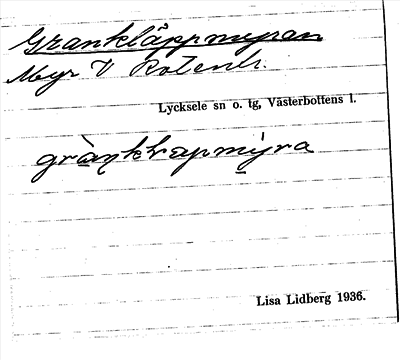 Grankläppmyran
Myr V Rotentr.
Lycksele sn o. tg, Västerbottens l.
grànkläpmýra
Lisa Lidberg 1936.